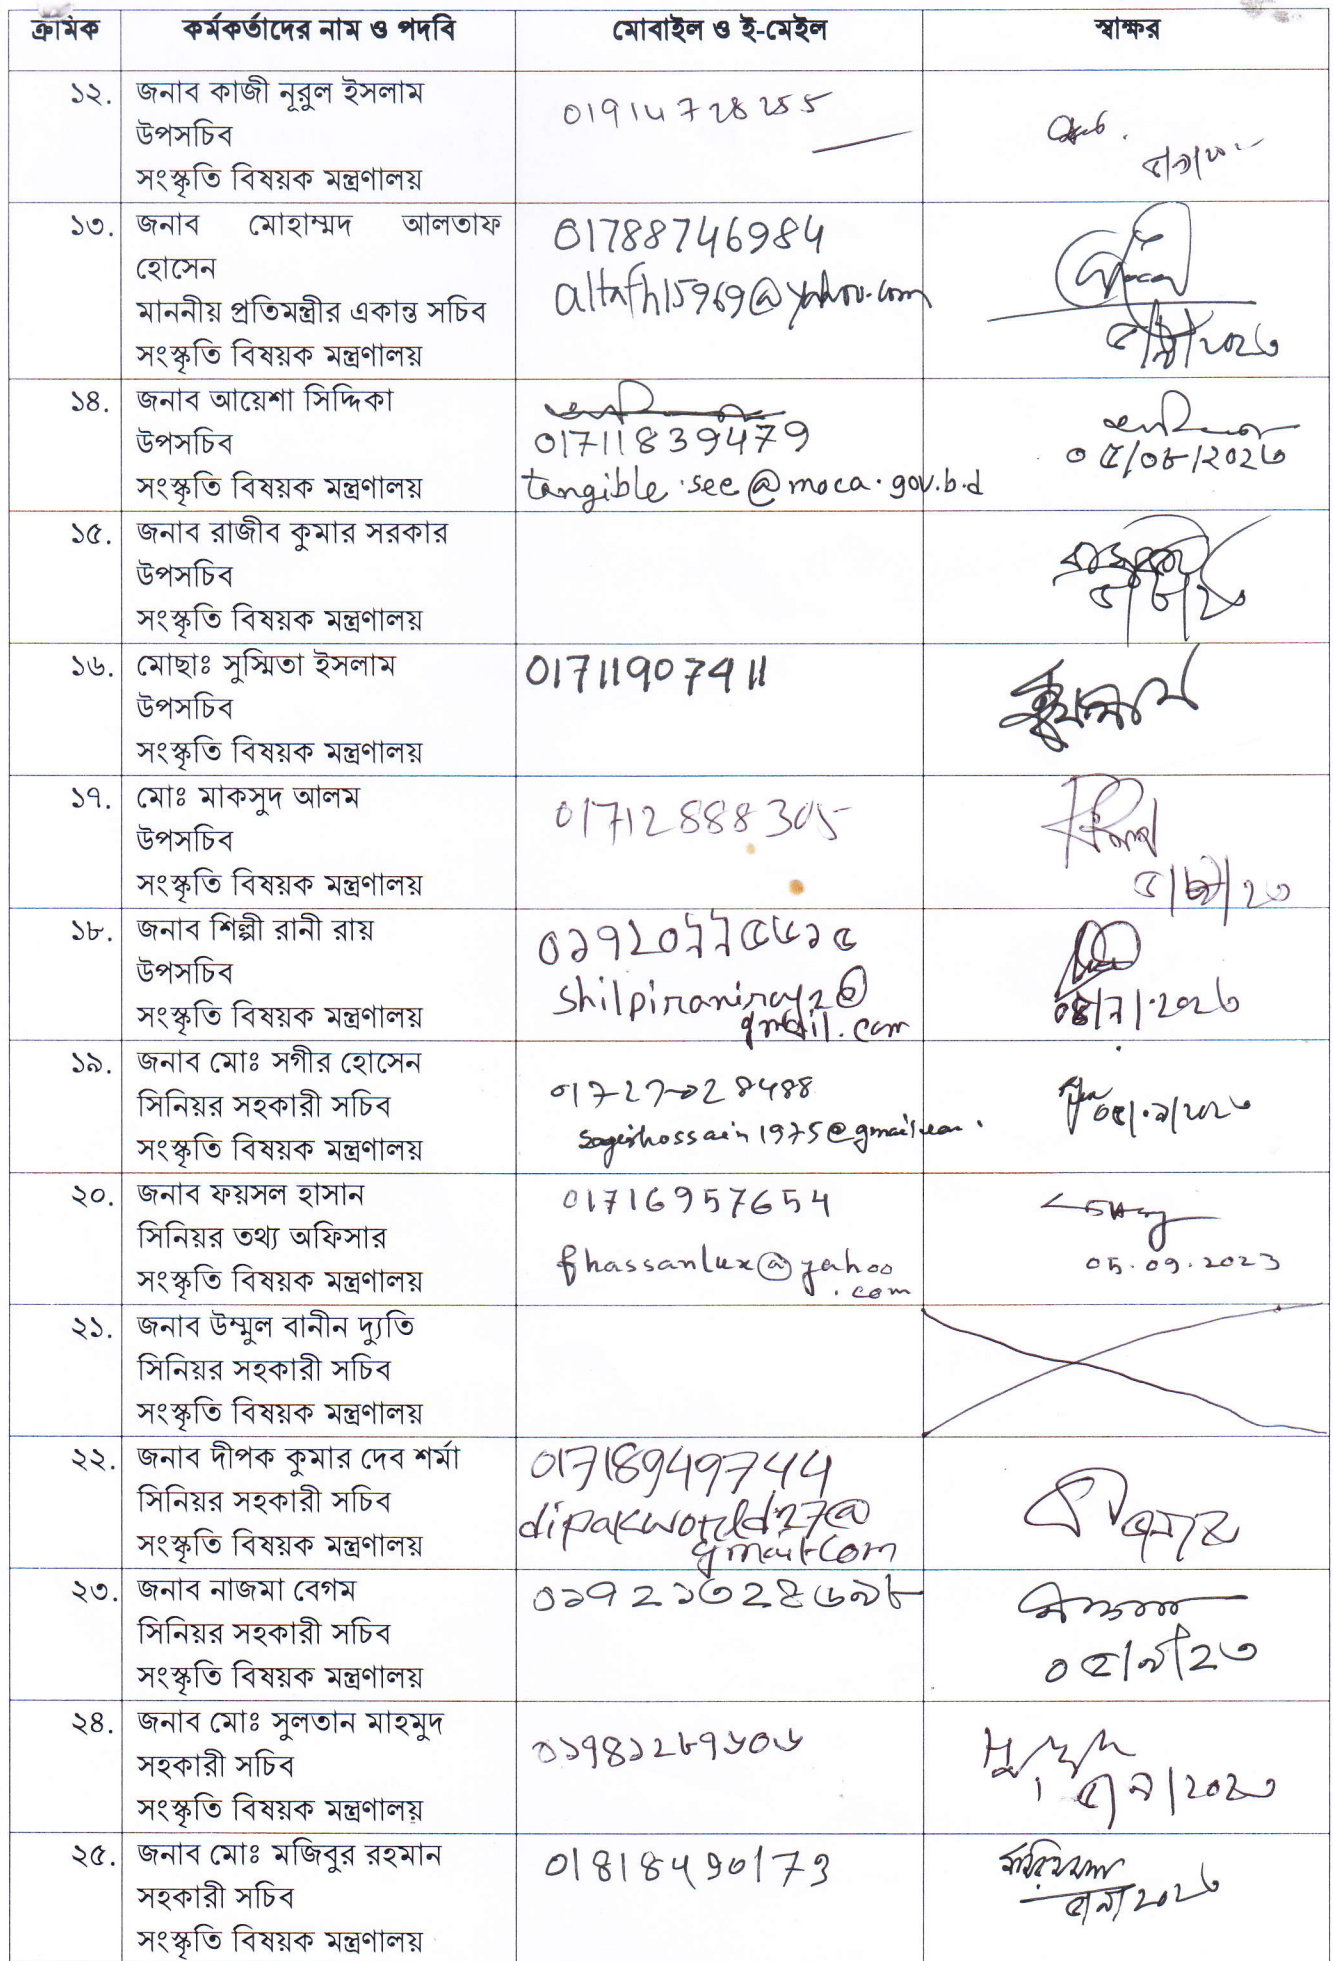 ক্রমিক কর্মকর্তাদের নাম ও পদবি মোবাইল ও ই-মেইল স্বাক্ষর
১২. জনাব কাজী নূরুল ইসলাম
উপসচিব
সংস্কৃতি বিষয়ক মন্ত্রণালয়
01914728255
১৩. জনাব মোহাম্মদ আলতাফ
হোসেন
মাননীয় প্রতিমন্ত্রীর একান্ত সচিব
সংস্কৃতি বিষয়ক মন্ত্রণালয়
01788746984
altafh15969@yahoo.com
৫/৯/২০২৩
১৪. জনাব আয়েশা সিদ্দিকা
উপসচিব
সংস্কৃতি বিষয়ক মন্ত্রণালয়
01711839479
tangible.sec@moca.gov.bd
০৫/০৮/২০২৩
১৫. জনাব রাজীব কুমার সরকার
উপসচিব
সংস্কৃতি বিষয়ক মন্ত্রণালয়
৫/৮/২৩
১৬. মোছাঃ সুস্মিতা ইসলাম
উপসচিব
সংস্কৃতি বিষয়ক মন্ত্রণালয়
01711907411
১৭. মোঃ মাকসুদ আলম
উপসচিব
সংস্কৃতি বিষয়ক মন্ত্রণালয়
01712888305
১৮. জনাব শিল্পী রানী রায়
উপসচিব
সংস্কৃতি বিষয়ক মন্ত্রণালয়
shilpiraniray2@
gmail.com
১৯. জনাব মোঃ সগীর হোসেন
সিনিয়র সহকারী সচিব
সংস্কৃতি বিষয়ক মন্ত্রণালয়
01727028488
sagirhossain1975@gmail.com
০৫/০৯/২০২৩
২০. জনাব ফয়সল হাসান
সিনিয়র তথ্য অফিসার
সংস্কৃতি বিষয়ক মন্ত্রণালয়
01716957654
fhassanlux@yahoo
.com
05.09.2023
২১. জনাব উম্মুল বানীন দ্যুতি
সিনিয়র সহকারী সচিব
সংস্কৃতি বিষয়ক মন্ত্রণালয়
২২. জনাব দীপক কুমার দেব শর্মা
সিনিয়র সহকারী সচিব
সংস্কৃতি বিষয়ক মন্ত্রণালয়
01718949744
dipakworld27@
gmail.com
২৩. জনাব নাজমা বেগম
সিনিয়র সহকারী সচিব
সংস্কৃতি বিষয়ক মন্ত্রণালয়
০৫/৯/২৩
২৪. জনাব মোঃ সুলতান মাহমুদ
সহকারী সচিব
সংস্কৃতি বিষয়ক মন্ত্রণালয়
৫/৯/২০২৩
২৫. জনাব মোঃ মজিবুর রহমান
সহকারী সচিব
সংস্কৃতি বিষয়ক মন্ত্রণালয়
01818490173
৫/৯/২০২৩